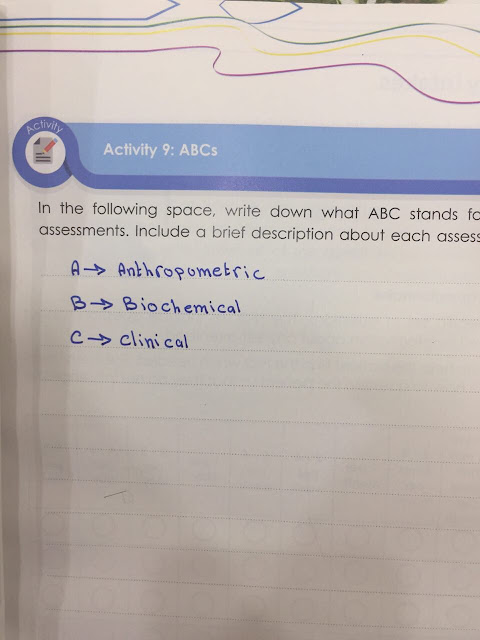 Activity
Activity 9: ABCs
In the following space, write down what ABC stands fo
assessments. Include a brief description about each assess
A → Anthropometric
B → Biochemical
C → Clinical